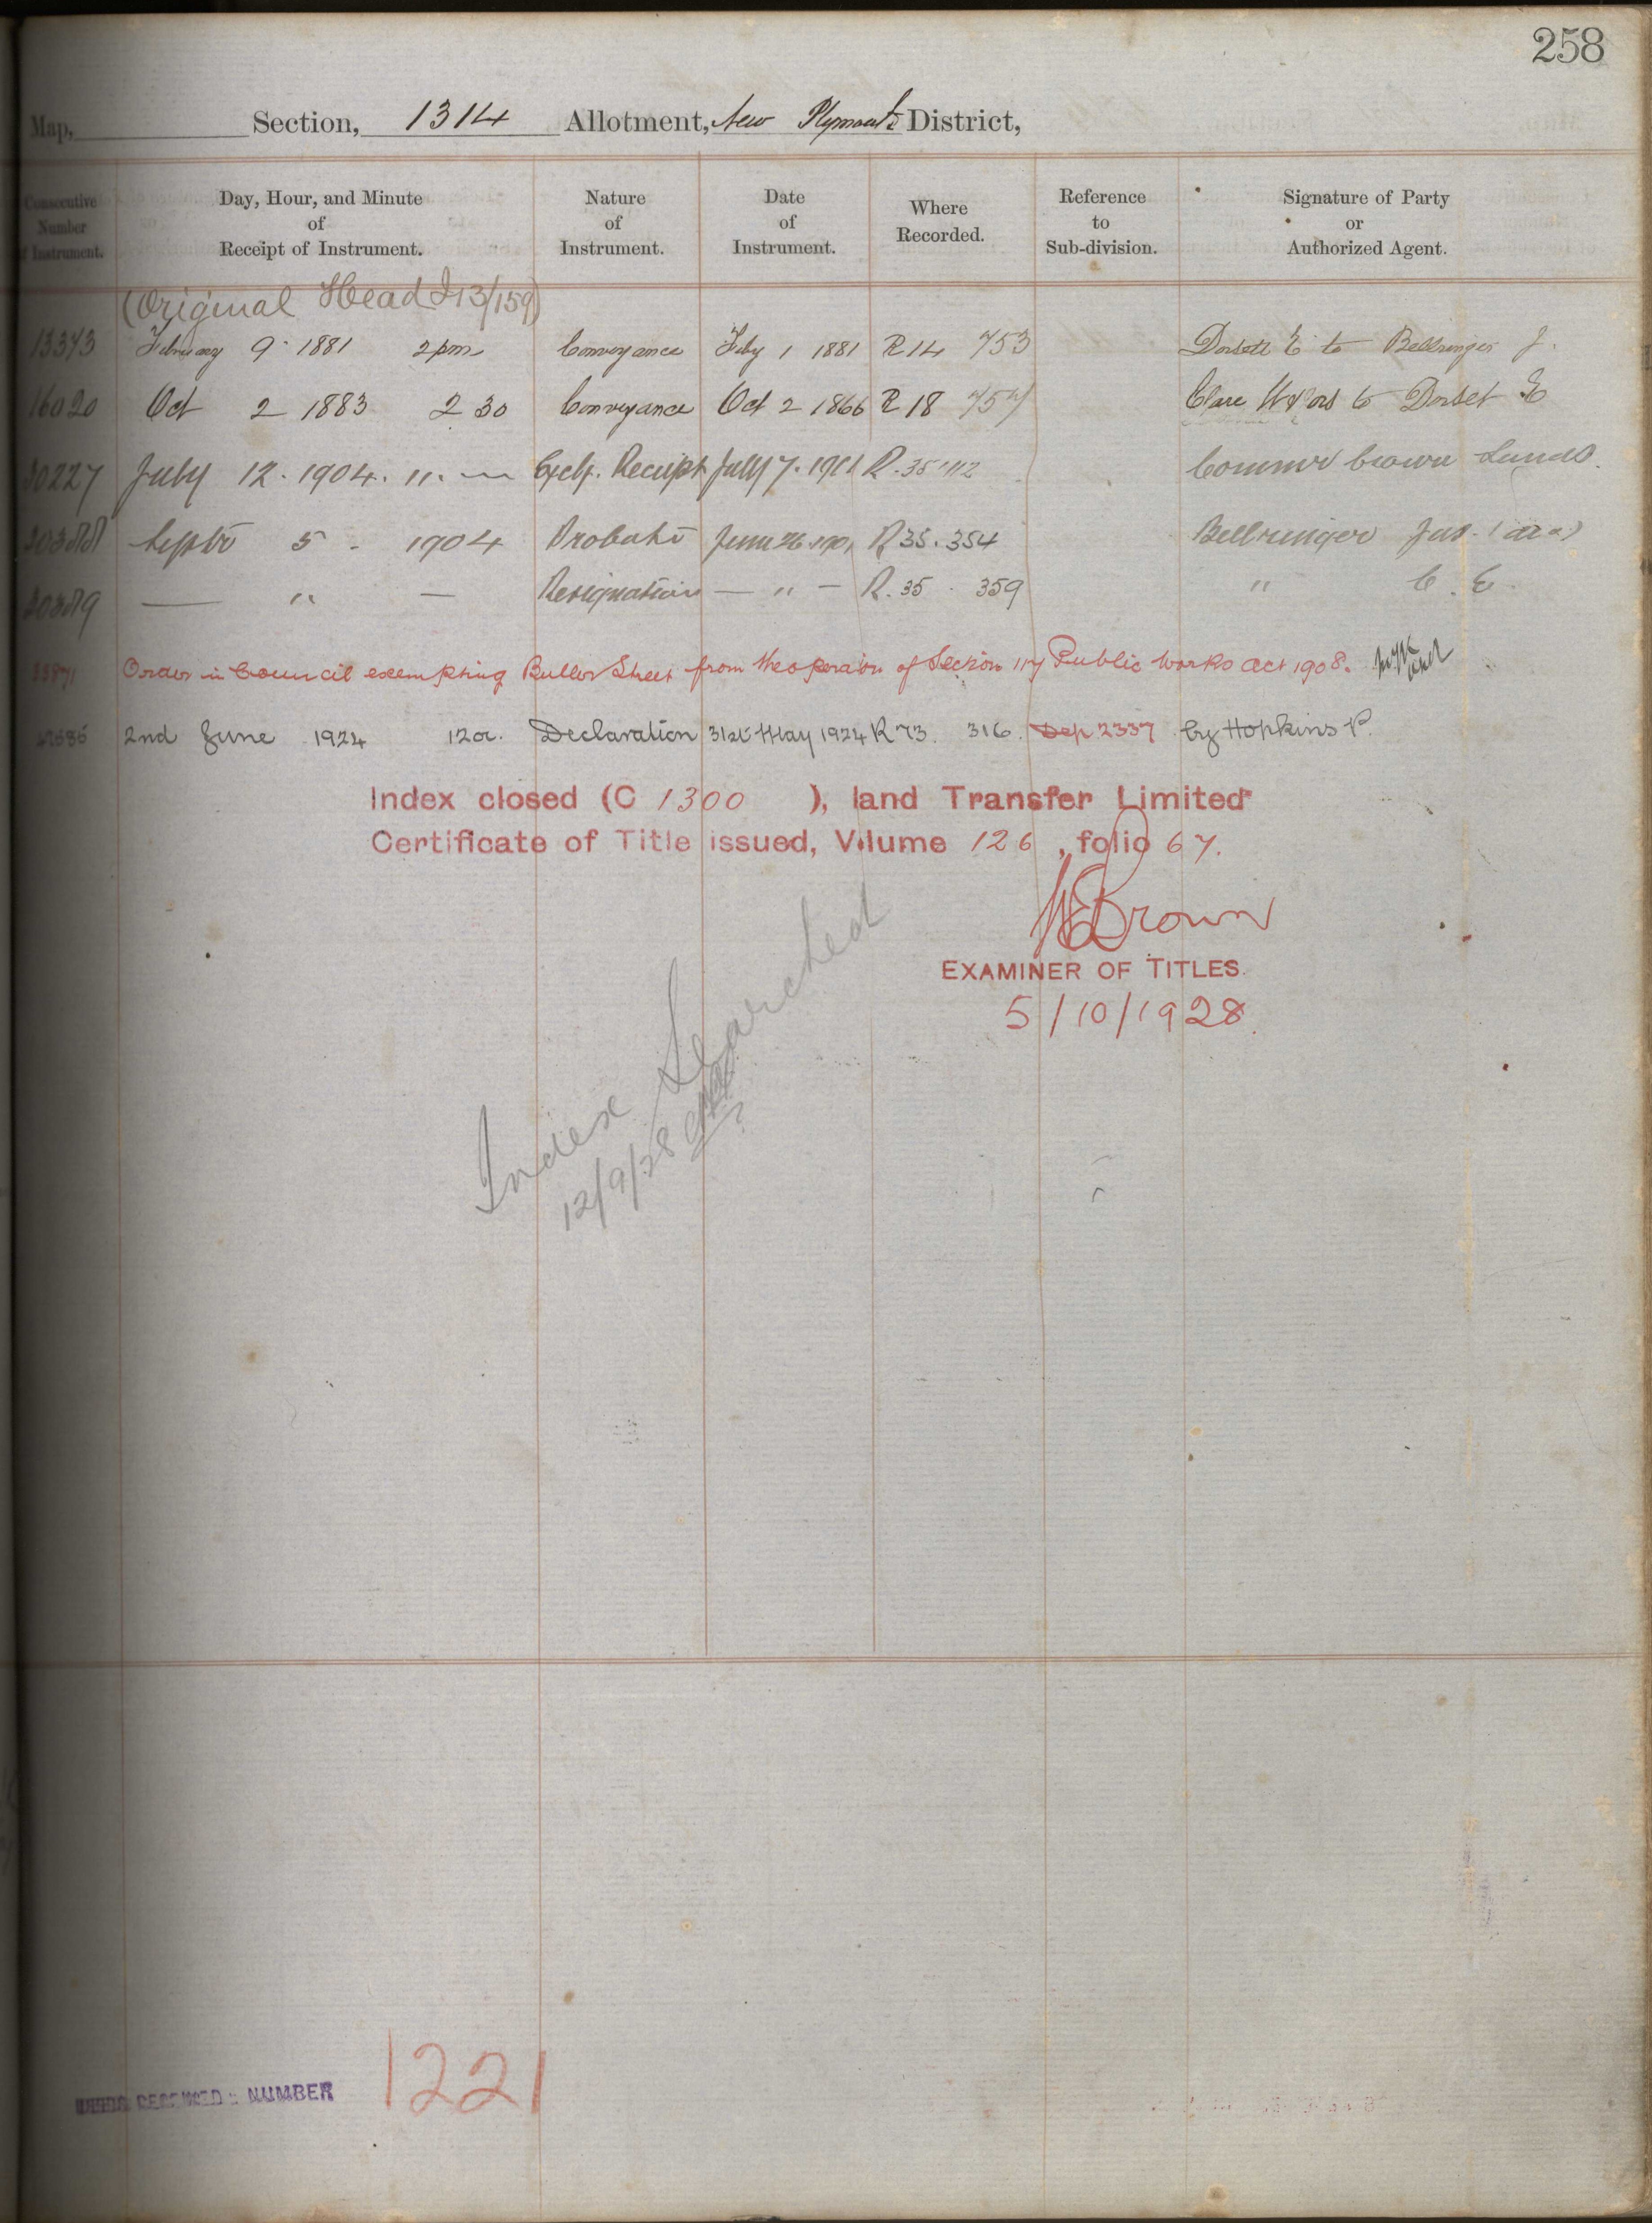 258
Map, Section, 1314 Allotment, New Plymouth District,
Consecutive Number of Instrument. Day, Hour, and Minute of Receipt of Instrument. Nature of Instrument. Date of Instrument. Where Recorded. Reference to Sub-division. Signature of Party or Authorized Agent.
(Original Head I 13/159)
13373 February 9 1881 2 pm Conveyance Feby 1 1881 R 14 753 Dorsett E to Bellringer J.
16020 Oct 2 1883 2 30 Conveyance Oct 2 1866 R 18 757 Clare W & ors to Dorset E
30227 July 12. 1904. 11. Certf. Receipt July 7. R. 35. 112 Commr Crown Lands.
Septr 5 - 1904 Probate June 26 R 35. 354 Bellringer Jas.
— " — Resignation — " — R. 35 . 359 " C. E.
Order in Council exempting Buller Street from the operation of Section 117 Public Works Act 1908.
2nd June 1924 12 Declaration 31st May 1924 R 73. 316. Dep 2337 by Hopkins P.
Index closed (C 1300 ), land Transfer Limited
Certificate of Title issued, Volume 126, folio 67.
Brown
EXAMINER OF TITLES.
5/10/1928.
Index Searched
12/9/28
NUMBER 1221